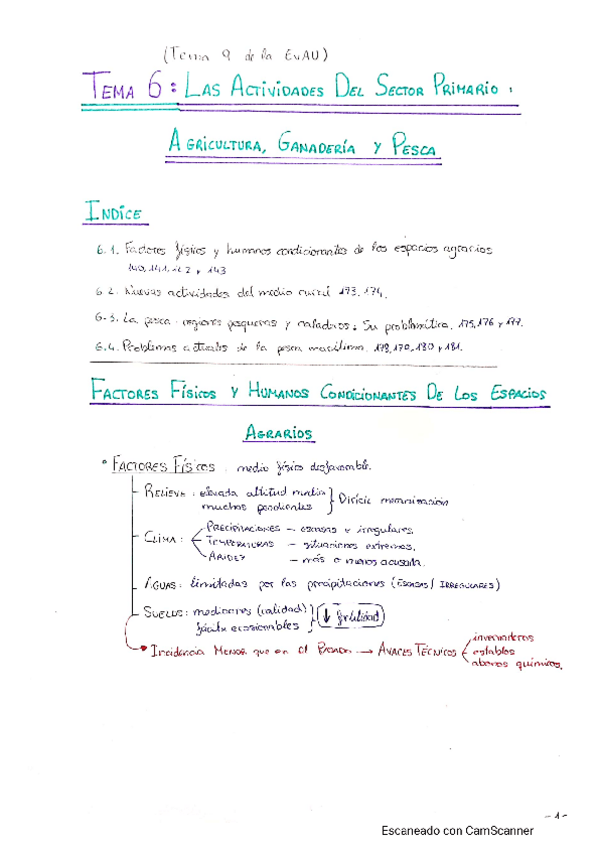 (Tema 9 de la EvAU)
TEMA 6: LAS ACTIVIDADES DEL SECTOR PRIMARIO:
AGRICULTURA, GANADERÍA Y PESCA
INDICE
6.1. Factores físicos y humanos condicionantes de los espacios agrarios
140, 141, 142 y 143
6.2. Nuevas actividades del medio rural 173, 174.
6.3. La pesca: regiones pesqueras y caladeros: Su problemática. 175, 176 y 177.
6.4. Problemas actuales de la pesca marítima. 178, 179, 180 y 181.
FACTORES FÍSICOS Y HUMANOS CONDICIONANTES DE LOS ESPACIOS
AGRARIOS
• FACTORES FÍSICOS: medio físico desfavorable.
- RELIEVE: elevada altitud media
muchas pendientes } Difícil mecanización
- CLIMA: PRECIPITACIONES - escasas e irregulares.
TEMPERATURAS - situaciones extremas.
ARIDEZ - más o menos acusada.
- AGUAS: limitadas por las precipitaciones (ESCASAS / IRREGULARES)
- SUELOS: mediocres (calidad)
fácilm erosionables } ↓ fertilidad
Incidencia MENOR que en el PASADO → AVACES TÉCNICOS
invernaderos
establos
abonos químicos.
- 1 -
Escaneado con CamScanner